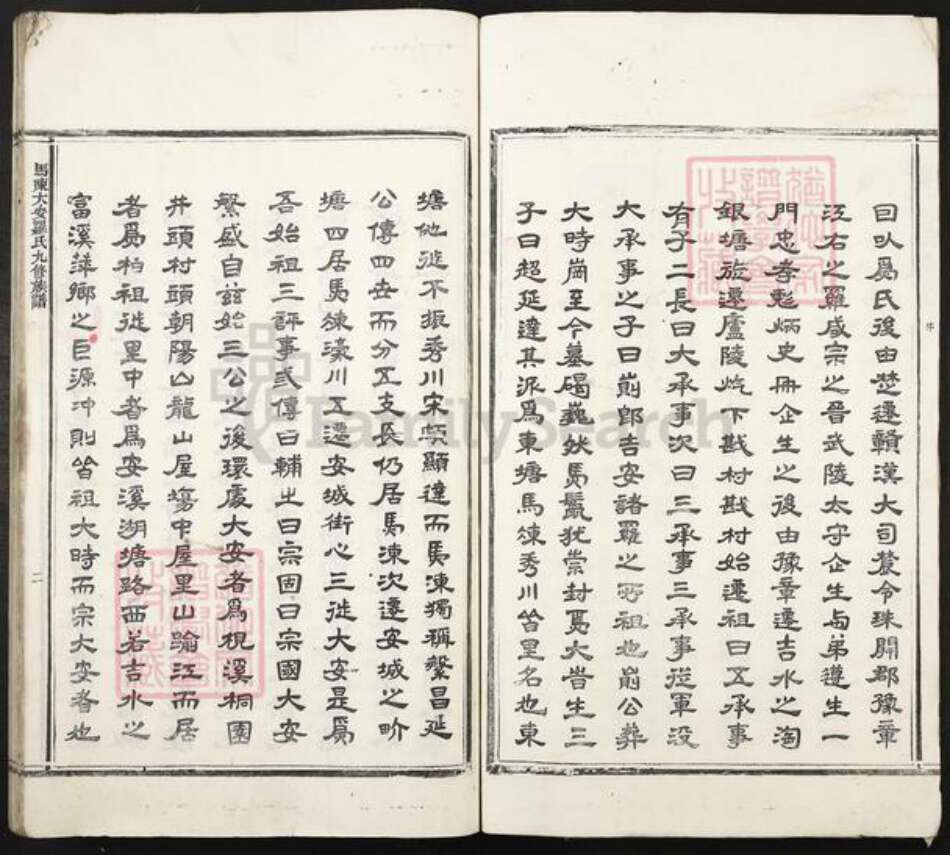 回以爲氏後由楚遷贛漢大司農令珠開郡豫章
江右之羅咸宗之晉武陵太守企生与弟遵生一
門忠孝彪炳史冊企生之後由豫章遷吉水之淘
銀塘旋遷廬陵炕下戡村戡村始遷祖曰五承事
有子二長曰大承事次曰三承事三承事從軍没
大承事之子曰崱郎吉安諸羅之所祖也崱公葬
大時崗至今墓碣巍然馬鬣猶崇封焉大時生三
子曰超延達其派爲東塘馬涷秀川皆里名也東
塘他徙不振秀川宋頗顯達而馬涷獨稱繁昌延
公傳四世而分五支長仍居馬涷次遷安城之畍
塘四居馬涷濠川五遷安城街心三徙大安是爲
吾始祖三評事弍傳曰輔之曰宗固曰宗國大安
繁盛自兹始三公之後環處大安者爲梘溪桐園
井頭村頭朝陽山龍山屋塲中屋里山踰江而居
者爲柏祖徙里中者爲安溪湖塘路西若吉水之
富溪萍鄉之巨源冲則皆祖大時而宗大安者也
馬涷大安羅氏九修族譜
二
序
FamilySearch